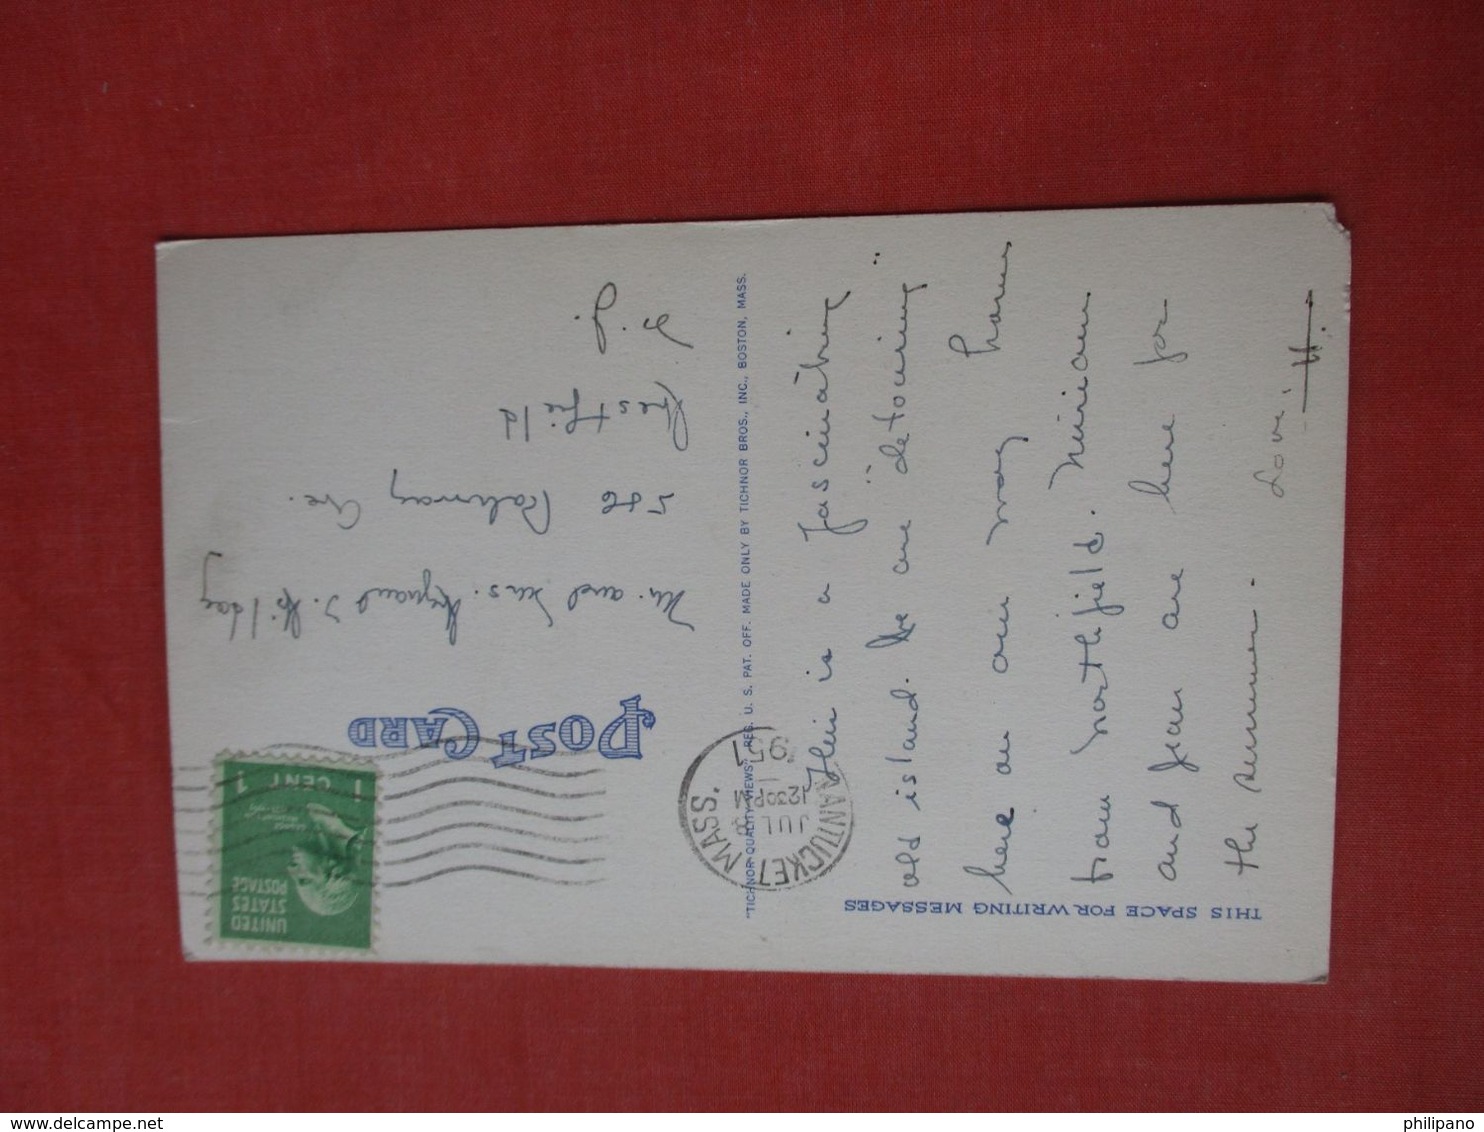 THIS SPACE FOR WRITING MESSAGES
This is a fascinating
old island. We are "detouring"
here on our way home
from Northfield. Miriam
and Jean are here for
the summer.
Love,
H.
"TICHNOR QUALITY VIEWS" REG. U. S. PAT. OFF. MADE ONLY BY TICHNOR BROS., INC., BOSTON, MASS.
NANTUCKET MASS.
JUL 8
1230 PM
1951
POST CARD
UNITED
STATES
POSTAGE
1 CENT 1
Mr. and Mrs. J. Holiday
586 Rahway Ave.
Westfield
N. J.
philipano